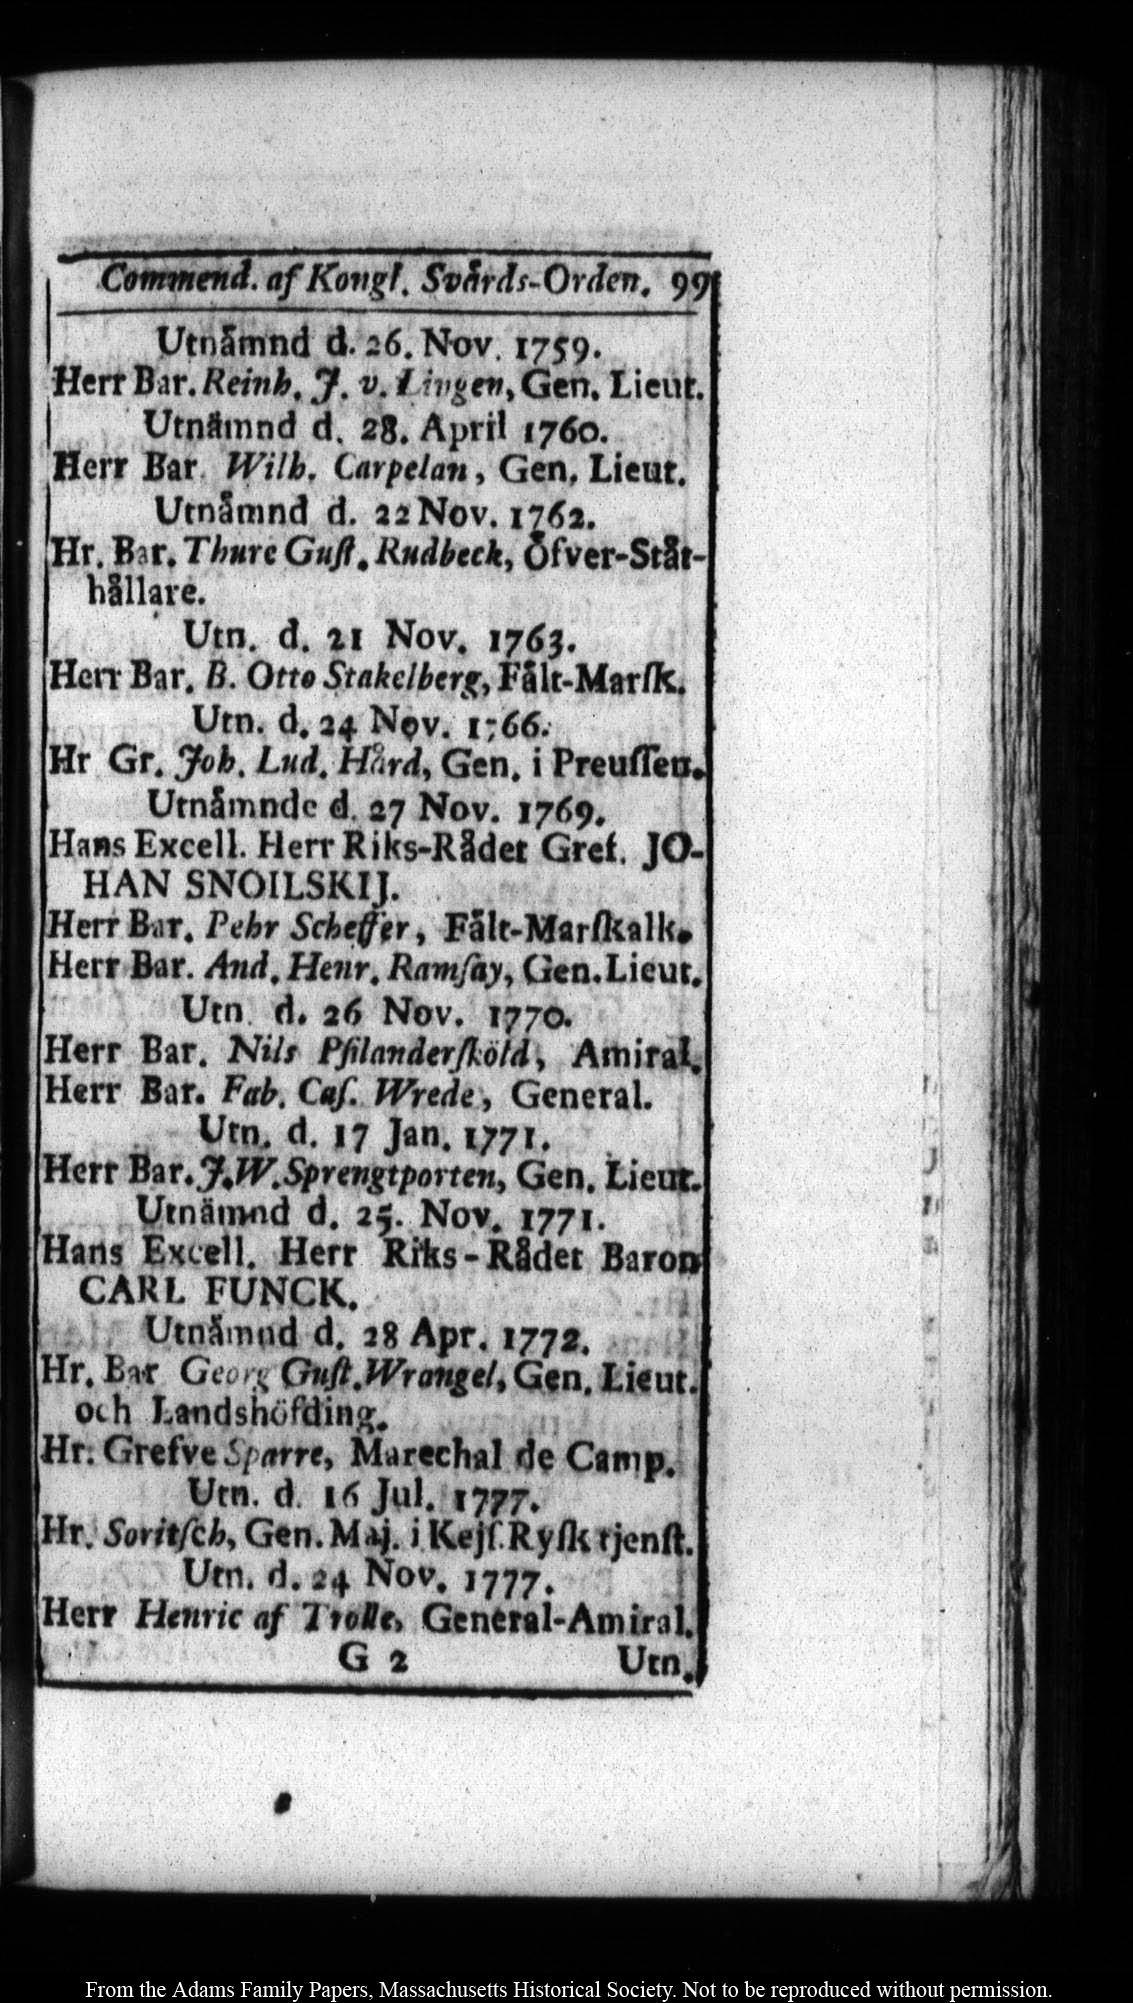 Commend. af Kongl. Svårds-Orden. 99
Utnåmnd d. 26. Nov. 1759.
Herr Bar. Reinh. J. v. Lingen, Gen. Lieut.
Utnämnd d. 28. April 1760.
Herr Bar. Wilh. Carpelan, Gen. Lieut.
Utnåmnd d. 22 Nov. 1762.
Hr. Bar. Thure Guſt. Rudbeck, Öfver-Ståt-
hållare.
Utn. d. 21 Nov. 1763.
Herr Bar. B. Otto Stakelberg, Fålt-Marſk.
Utn. d. 24 Nov. 1766.
Hr Gr. Joh. Lud. Hård, Gen. i Preuſſen.
Utnåmnde d. 27 Nov. 1769.
Hans Excell. Herr Riks-Rådet Gref. JO-
HAN SNOILSKIJ.
Herr Bar. Pehr Scheffer, Fålt-Marſkalk.
Herr Bar. And. Henr. Ramſay, Gen. Lieut.
Utn. d. 26 Nov. 1770.
Herr Bar. Nils Pſilanderſköld, Amiral.
Herr Bar. Fab. Caſ. Wrede, General.
Utn. d. 17 Jan. 1771.
Herr Bar. J. W. Sprengtporten, Gen. Lieut.
Utnämnd d. 25. Nov. 1771.
Hans Excell. Herr Riks-Rådet Baron
CARL FUNCK.
Utnåmnd d. 28 Apr. 1772.
Hr. Bar Georg Guſt. Wrangel, Gen. Lieut.
och Landshöfding.
Hr. Grefve Sparre, Marechal de Camp.
Utn. d. 16 Jul. 1777.
Hr. Soritſch, Gen. Maj. i Kejſ. Ryſk tjenſt.
Utn. d. 24 Nov. 1777.
Herr Henric af Trolle, General-Amiral.
G 2 Utn.
From the Adams Family Papers, Massachusetts Historical Society. Not to be reproduced without permission.